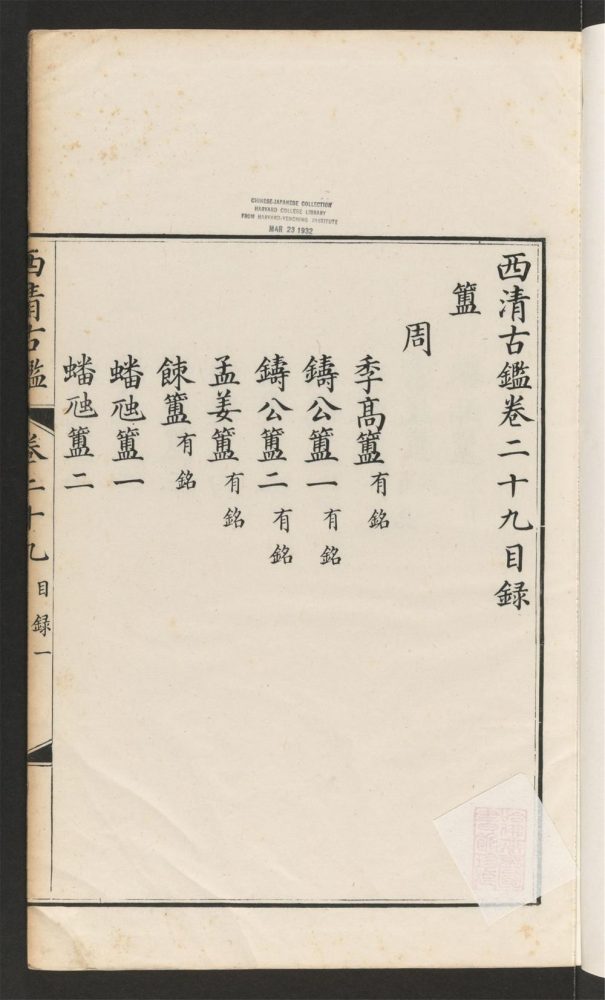 CHINESE-JAPANESE COLLECTION
HARVARD COLLEGE LIBRARY
FROM HARVARD-YENCHING INSTITUTE
MAR 23 1932
西清古鑑卷二十九目録
簠
周
季高簠有銘
鑄公簠一有銘
鑄公簠二有銘
孟姜簠有銘
餗簠有銘
蟠虺簠一
蟠虺簠二
西清古鑑 卷二十九 目録 一